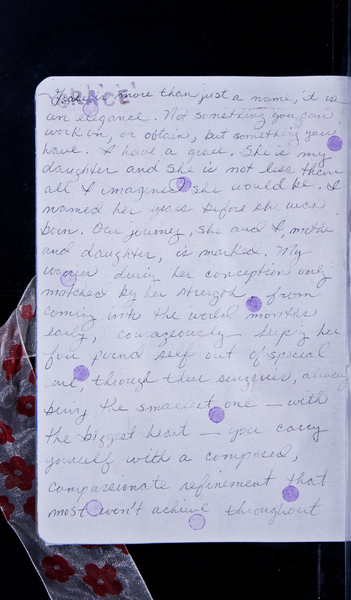 GRACE
Grace is more than just a name, it is
an elegance. Not something you can
work on, or obtain, but something you
have. I have a grace. She is my
daughter and she is not less than
all I imagined she would be. I
named her grace before she was
born. Our journey, she and I mother
and daughter, is marked. My
during her conception only
matched by her strength from
coming into the world months
early, courageously
four pound self out of special
care, through three surgeries, always
being the smallest one — with
the biggest heart — you carry
yourself with a composed,
compassionate refinement that
most won't achieve throughout